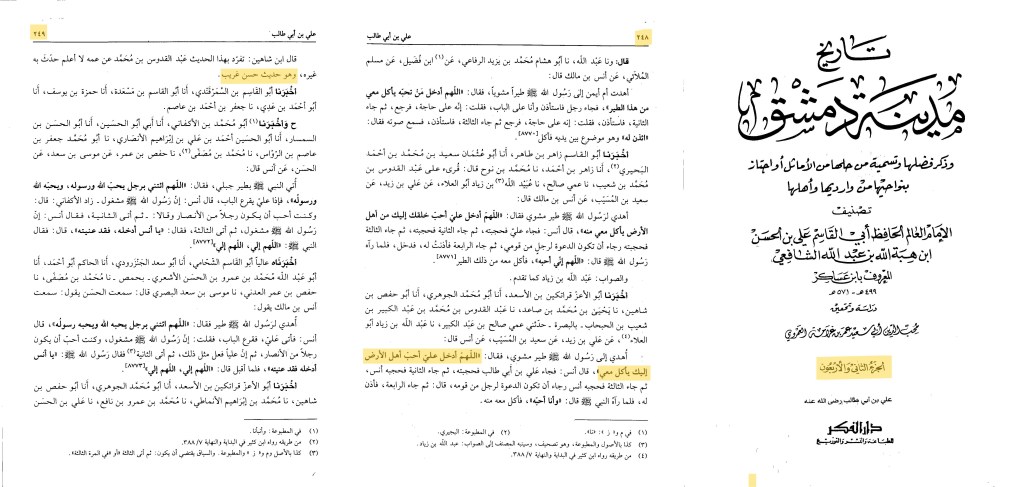 تاريخ
مدينة دمشق
وذكر فضلها وتسمية من حلها من الأماثل أو اجتاز
بنواحيها من وارديها وأهلها
تصنيف
الإمام العالم الحافظ أبي القاسم علي بن الحسن
ابن هبة الله بن عبد الله الشافعي
المعروف بابن عساكر
٤٩٩ هـ - ٥٧١ هـ
دراسة وتحقيق
محب الدين أبي سعيد عمر بن غرامة العمروي
الجزء الثاني والأربعون
علي بن أبي طالب رضي الله عنه
دار الفكر
للطباعة والنشر والتوزيع
٢٤٨
علي بن أبي طالب
قال: ونا عبد الله، نا أبو هشام محمد بن يزيد الرفاعي، عن (١) ابن فضيل، عن مسلم
الملائي، عن أنس بن مالك قال:
أهدت أم أيمن إلى رسول الله ﷺ طيراً مشوياً، فقال: «اللهم أدخل من تحبه يأكل معي
من هذا الطير»، فجاء رجل فاستأذن وأنا على الباب، فقلت: إنه على حاجة، فرجع، ثم جاء
الثانية، فاستأذن، فقلت: إنه على حاجة، فرجع ثم جاء الثالثة، فاستأذن، فسمع صوته فقال:
«ائذن له» وهو موضوع بين يديه فأكل [٨٧٧٠]
اخبرنا أبو القاسم زاهر بن طاهر، أنا أبو عثمان سعيد بن محمد بن أحمد
البحيري (٢)، أنا زاهر بن أحمد، نا محمد بن نوح قال: قرىء على عبد القدوس بن
محمد بن شعيب، نا عمي صالح، نا عبيد الله (٣) بن زياد أبو العلاء، عن علي بن زيد، عن
سعيد بن المسيب، عن أنس بن مالك قال:
أهدي لرسول الله ﷺ طير مشوي فقال: «اللهم أدخل علي أحب خلقك إليك من أهل
الأرض يأكل معي منه»، قال أنس: فجاء علي فحجبته، ثم جاء الثانية فحجبته، ثم جاء الثالثة
فحجبته رجاء أن تكون الدعوة لرجل من قومي، ثم جاء الرابعة فأذنت له، فدخل، فلما رآه
رسول الله ﷺ قال: «اللهم إني أحبه»، فأكل معه من ذلك الطير [٨٧٧١]
والصواب: عبد الله بن زياد كما تقدم.
اخبرنا أبو الأعز قراتكين بن الأسعد، أنا أبو محمد الجوهري، أنا أبو حفص بن
شاهين، نا يحيى بن محمد بن صاعد، نا عبد القدوس بن محمد بن عبد الكبير بن
شعيب بن الحبحاب ـ بالبصرة ـ حدثني عمي صالح بن عبد الكبير، نا عبد الله بن زياد أبو
العلاء (٤)، عن علي بن زيد، عن سعيد بن المسيب، عن أنس قال:
أهدي إلى رسول الله ﷺ طير مشوي، فقال: «اللهم أدخل علي أحب أهل الأرض
إليك يأكل معي»، قال أنس: فجاء علي بن أبي طالب فحجبته، ثم جاء الثانية فحجبه أنس،
ثم جاء الثالثة فحجبه أنس رجاء أن تكون الدعوة لرجل من قومه، قال: ثم جاء الرابعة، فأذن
له، فلما رآه النبي ﷺ قال: «وأنا أحبه»، فأكل معه منه.
(١) في م و ز: «نا».
(٢) في المطبوعة: البجيري.
(٣) كذا بالأصول والمطبوعة، وهو تصحيف، وسينبه المصنف إلى الصواب: عبد الله بن زياد.
(٤) من طريقه رواه ابن كثير في البداية والنهاية ٧/ ٣٨٨.
٢٤٩
علي بن أبي طالب
قال ابن شاهين: تفرد بهذا الحديث عبد القدوس بن محمد عن عمه لا أعلم حدث به
غيره، وهو حديث حسن غريب.
اخبرنا أبو القاسم بن السمرقندي، أنا أبو القاسم بن مسعدة، أنا حمزة بن يوسف، أنا
أبو أحمد بن عدي، نا جعفر بن أحمد بن عاصم.
ح واخبرنا (١) أبو محمد بن الأكفاني، أنا أبي أبو الحسين، أنا أبو الحسن بن
السمسار، أنا أبو الحسين أحمد بن علي بن إبراهيم الأنصاري، نا أبو محمد جعفر بن
عاصم بن الرواس، نا محمد بن مصفى (٢)، نا حفص بن عمر، عن موسى بن سعد، عن
الحسن، عن أنس قال:
أتي النبي ﷺ بطير جبلي، فقال: «اللهم ائتني برجل يحب الله ورسوله، ويحبه الله
ورسوله»، فإذا علي يقرع الباب، قال أنس: إن رسول الله ﷺ مشغول ـ زاد الأكفاني: قال:
وكنت أحب أن يكون رجلاً من الأنصار وقالا: ـ ثم أتى الثانية، فقال أنس: إن
رسول الله ﷺ مشغول، ثم أتى الثالثة، فقال: «يا أنس أدخله، فقد عنيته»، قال: فقال
النبي ﷺ: «اللهم إلي، اللهم إلي» [٨٧٧٢]
اخبرناه عالياً أبو القاسم الشحامي، أنا أبو سعد الجنزرودي، أنا الحاكم أبو أحمد، أنا
أبو عبد الله محمد بن عمرو بن الأشعري ـ بحمص ـ نا محمد بن مصفى، نا
حفص بن عمر العدني، نا موسى بن سعد البصري قال: سمعت الحسن يقول: سمعت
أنس بن مالك يقول:
أهدي لرسول الله ﷺ طير فقال: «اللهم ائتني برجل يحبه الله ويحبه رسوله»، قال
أنس: فأتى علي، فقرع الباب، فقلت: إن رسول الله ﷺ مشغول، وكنت أحب أن يكون
رجلاً من الأنصار، ثم إن علياً فعل مثل ذلك، ثم أتى الثانية (٣) فقال رسول الله ﷺ: «يا أنس
أدخله فقد عنيته»، فلما أقبل قال: «اللهم إلي، اللهم إلي» [٨٧٧٣]
اخبرنا أبو الأعز قراتكين بن الأسعد، أنا أبو محمد الجوهري، أنا أبو حفص بن
شاهين، نا محمد بن إبراهيم الأنماطي، نا محمد بن عمرو بن نافع، نا علي بن الحسن
(١) في المطبوعة: وأنبأنا.
(٢) من طريقه رواه ابن كثير في البداية والنهاية ٧/ ٣٨٨
(٣) كذا بالأصل وم و« ز » والمطبوعة. والسياق يقتضي أن يكون: ثم أتى الثالثة «أو «في المرة الثالثة».